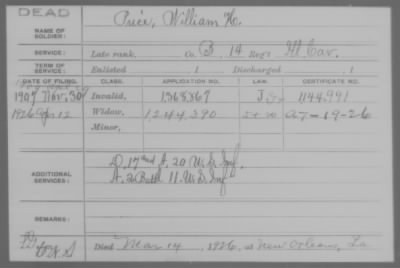 DEAD
NAME OF SOLDIER: Price, William H.
SERVICE: Late rank, Co. B 14 Reg't Ill. Cav.
TERM OF SERVICE: Enlisted , 1 Discharged , 1
DATE OF FILING. CLASS. APPLICATION NO. LAW. CERTIFICATE NO.
1907 Nov. 30 Invalid, 1368,867 J 1144,991
1926 Apr 12 Widow, 1244390 A7-19-26
Minor,
ADDITIONAL SERVICES: D, 17" A, 20 U.S. Inf.
A. 2 Batt 11. U.S. Inf
REMARKS:
Died Mar 14, 1926, at New Orleans, La